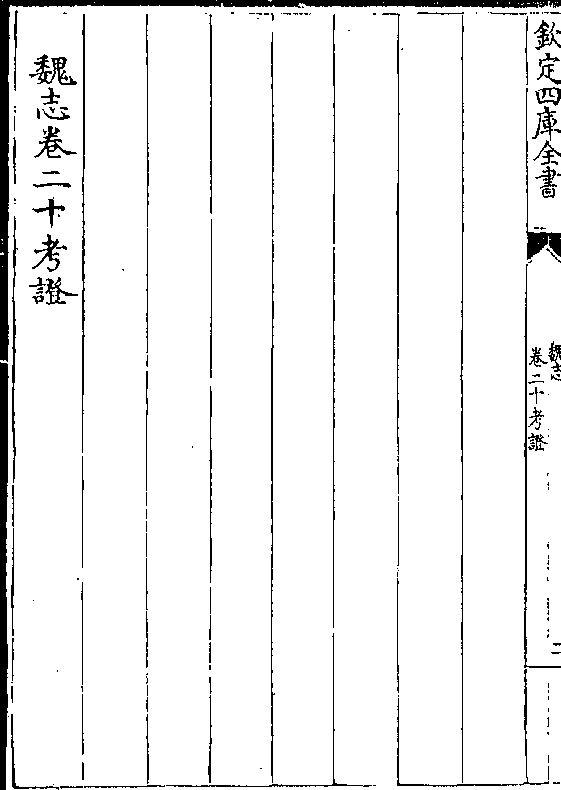 欽定四庫全書
魏志
卷二十考證
二
魏志卷二十考證